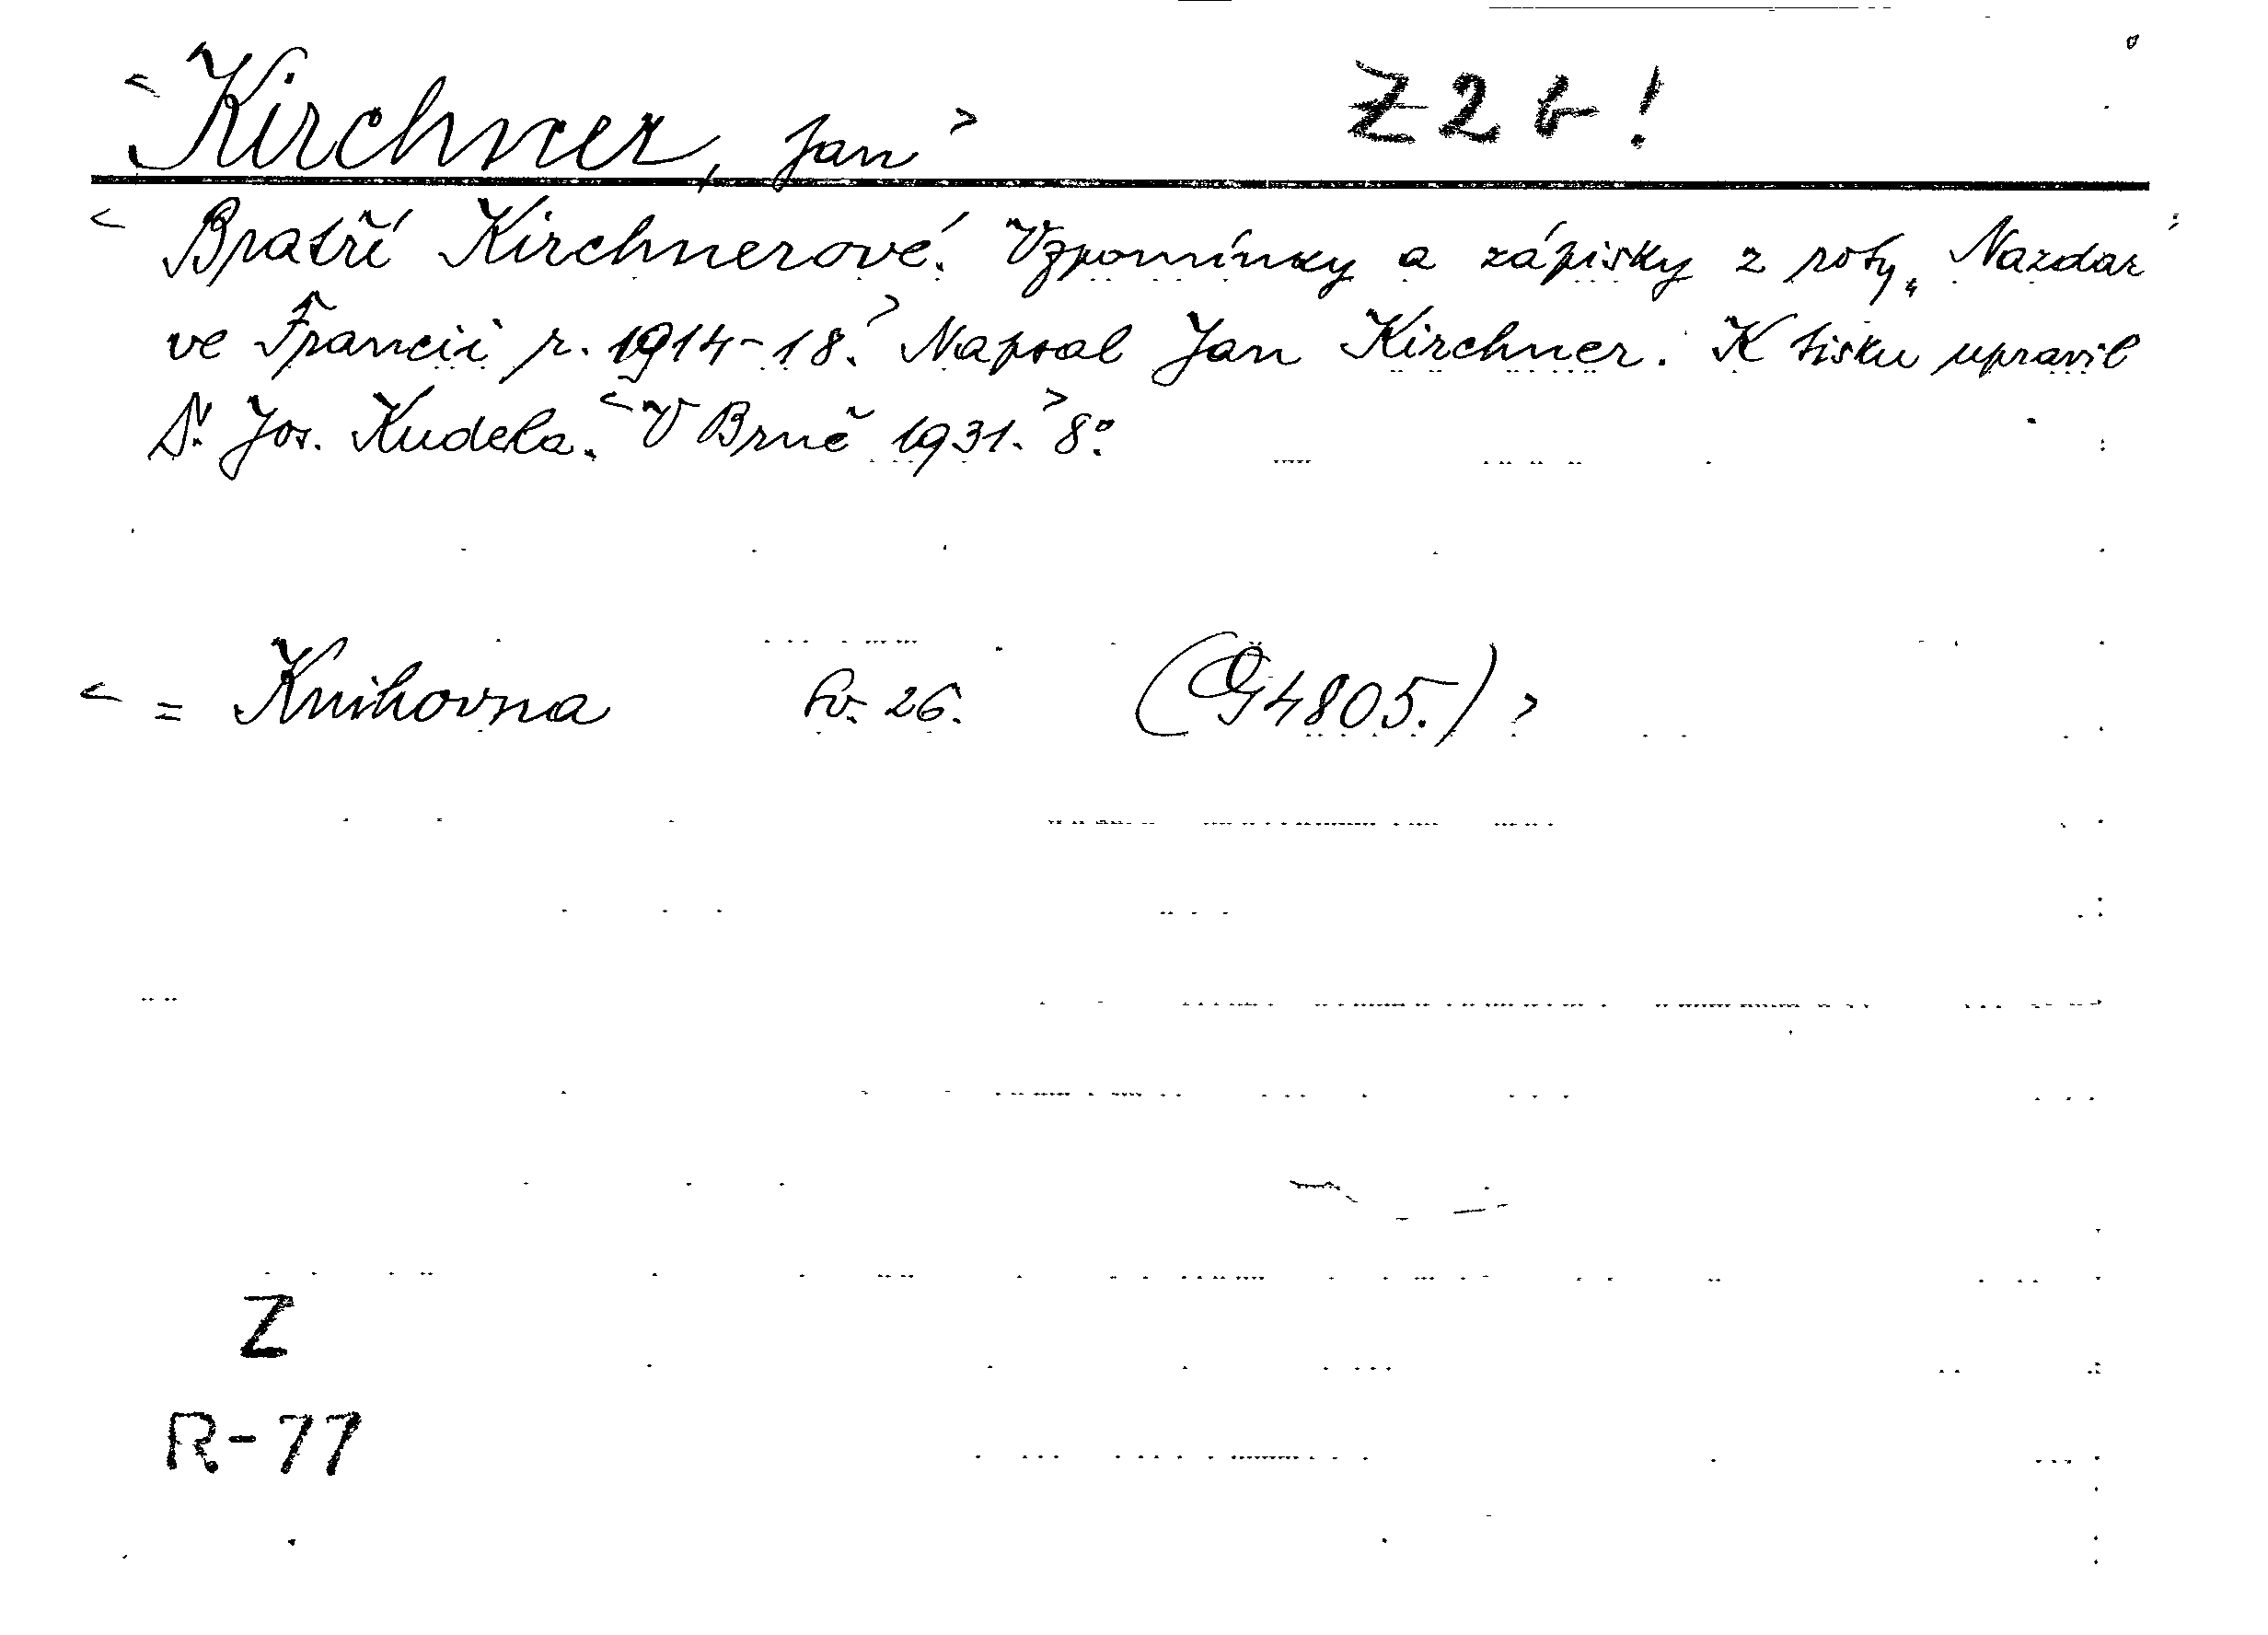 <Kirchner, Jan> Z 2 b!
<Bratří Kirchnerové. Vzpomínky a zápisky z roty „Nazdar"
ve Francii r. 1914-18.> Napsal Jan Kirchner. K tisku upravil
Dr. Jos. Kudela. <V Brně 1931.> 8°.
<= Knihovna sv. 26. (Č 4805.)>
Z
R-77